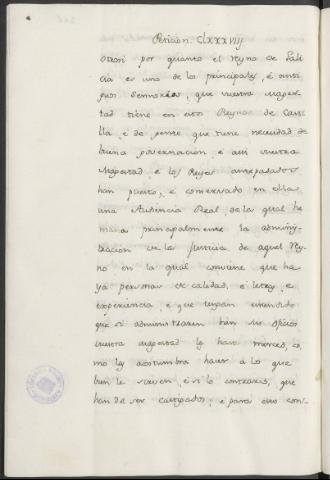 Peticion. Clxxxviij
Otrosi por quanto el Reyno de Gali
cia es uno de los principales, é anti
guos Señoríos, que vuestra mages
tad tiene en estos Reynos de Casti
lla, é de gente que tiene necesidad de
buena governacion, é asi vuestra
Magestad, é los Reyes antepasados
han puesto, é conservado en ella
una Audiencia Real, de la qual he
mana principalmente la adminis
tracion de la Justicia de aquel Rey
no en la qual conviene que ha
ya personas de calidad, é letras, e
experiencia, é que tengan entendido
que si administraren bien sus oficios
vuestra magestad les hará merced, co
mo les acostumbra hacer á los que
bien le sirven, é si lo contrario, que
han de ser castigados; é para esto con-